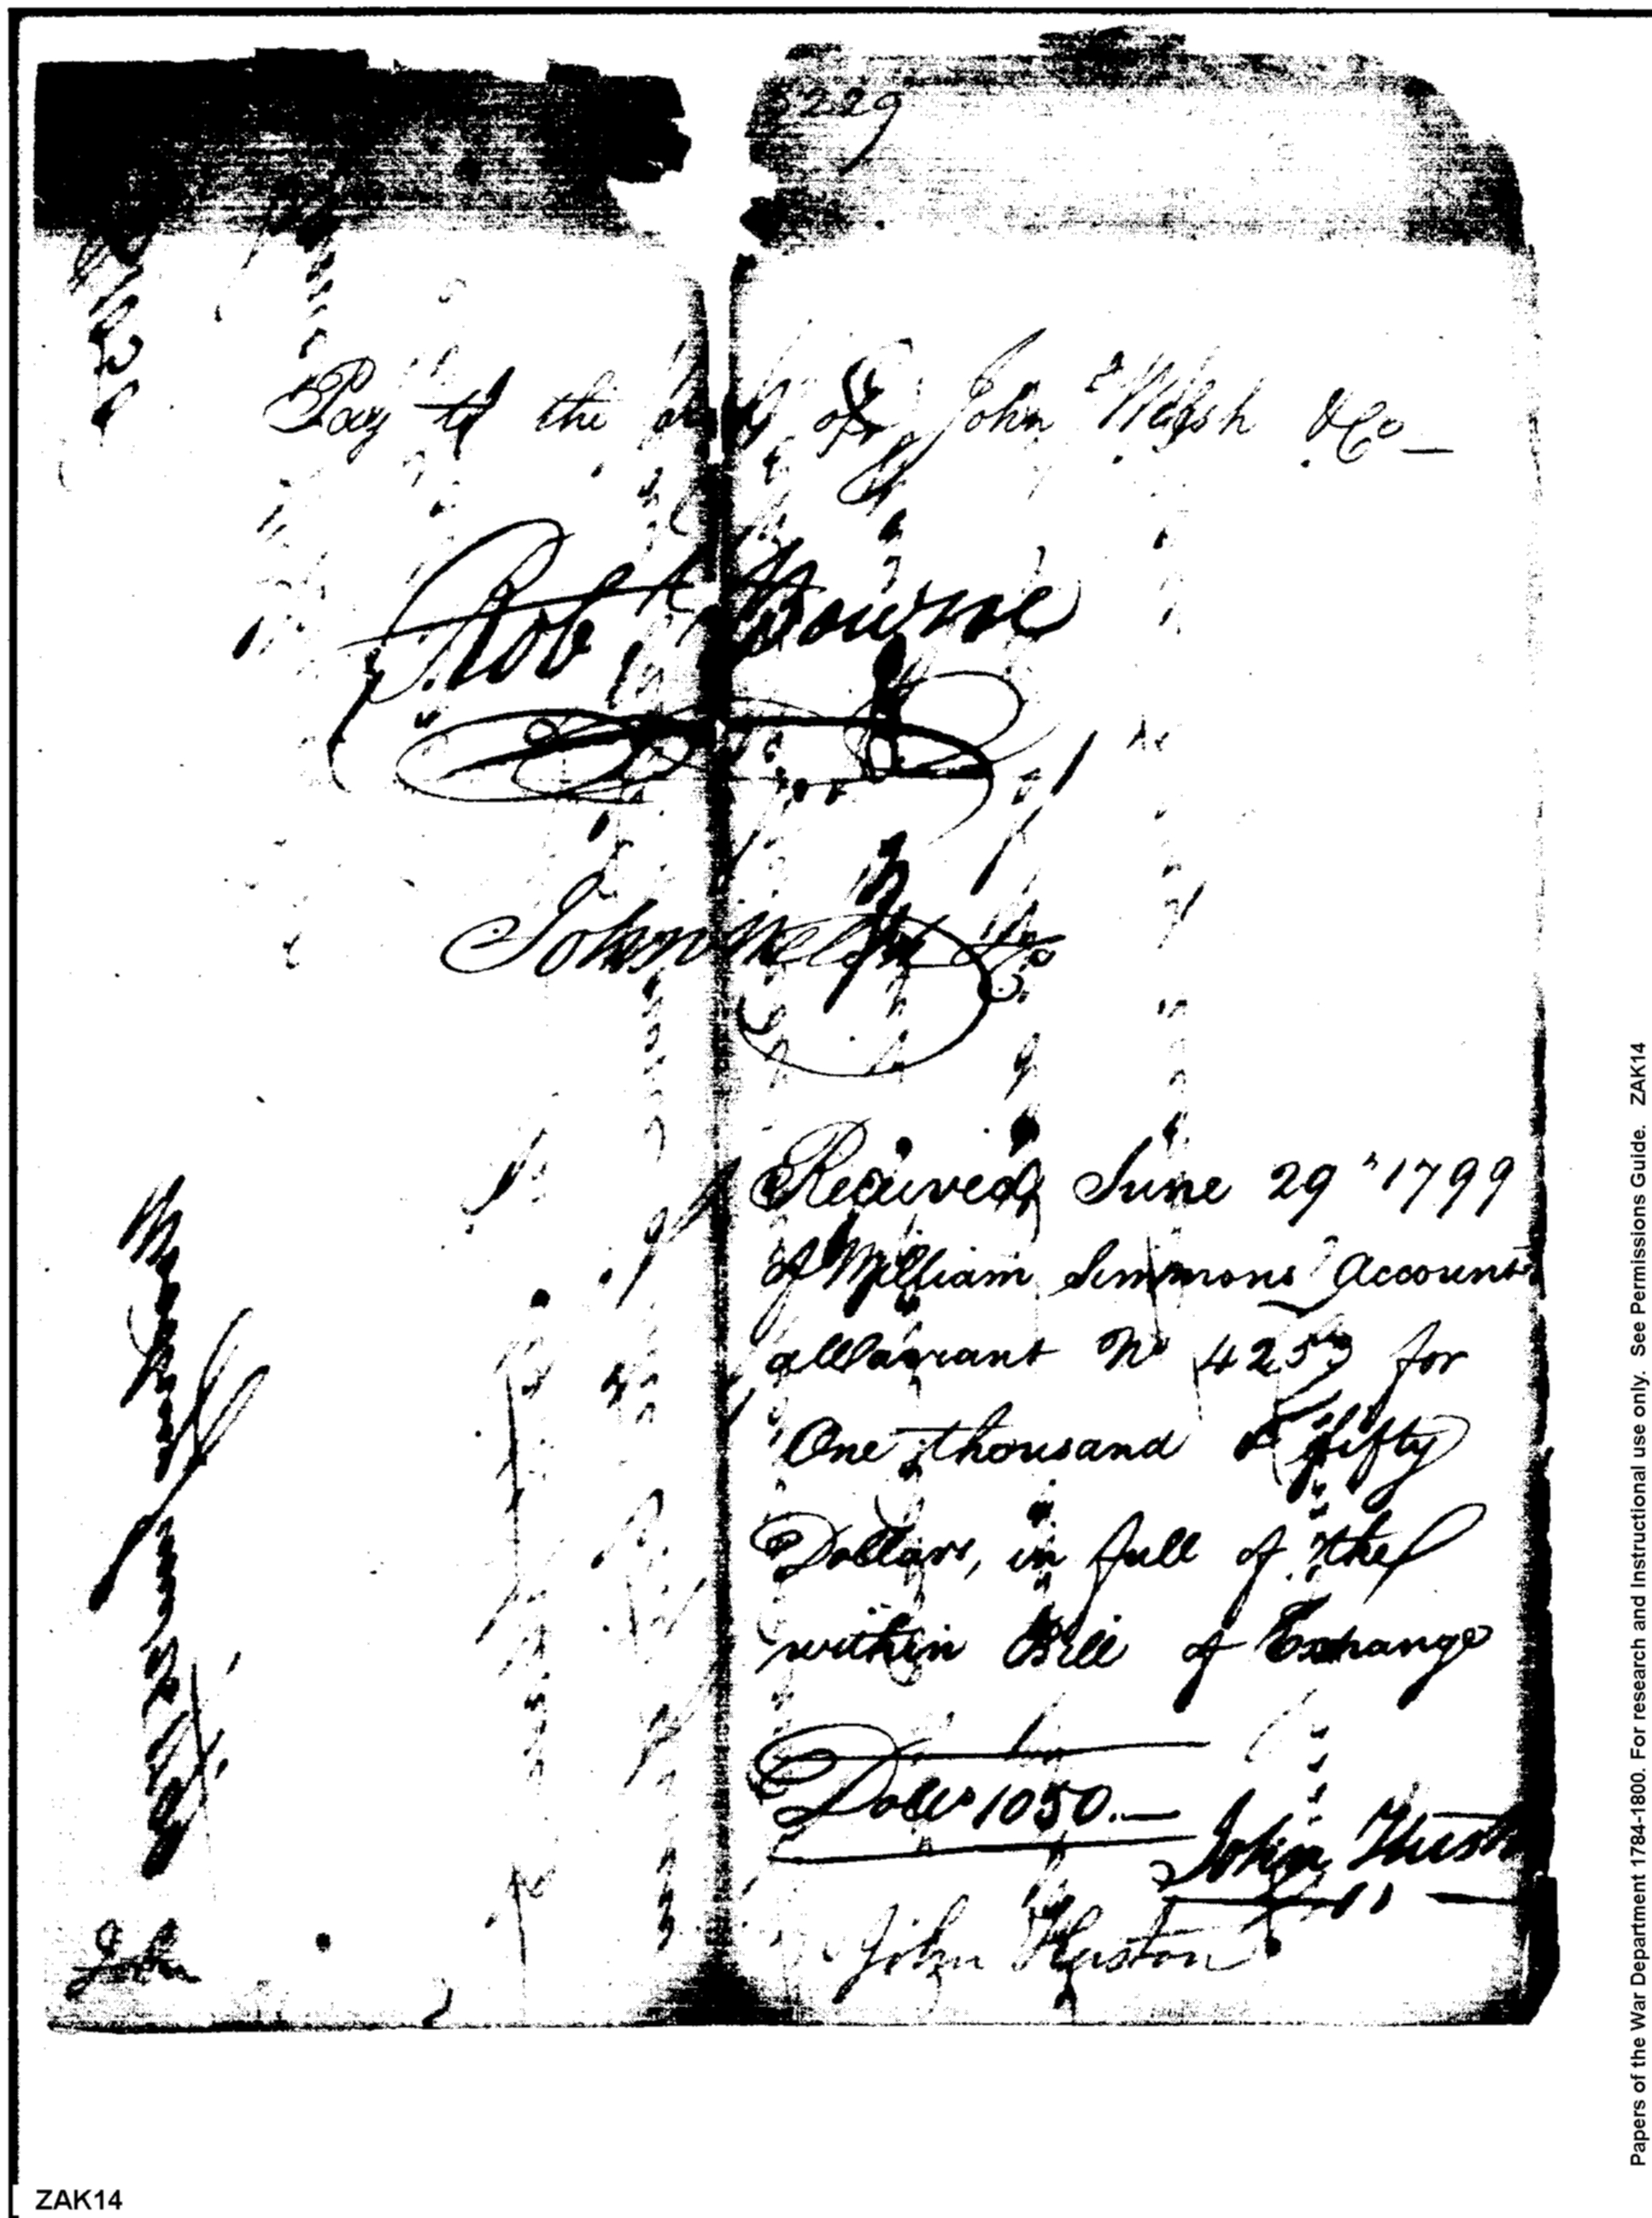 5229
Pay to the order of John Welsh & Co
Robt Bourne
John Welsh & Co
Received June 29th 1799
of William Simmons Account
a Warrant No 4253 for
One thousand & fifty
Dollars, in full of the
within Bill of Exchange
Dolls 1050.—
John Hust
John Huston
John
Papers of the War Department 1784-1800. For research and Instructional use only. See Permissions Guide. ZAK14
ZAK14